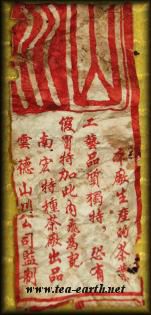 本廠生產的茶
工藝品質獨特，恐有
假冒特加此內飛為記
南宏特種茶廠出品
雲德山川公司監制
www.tea-earth.net